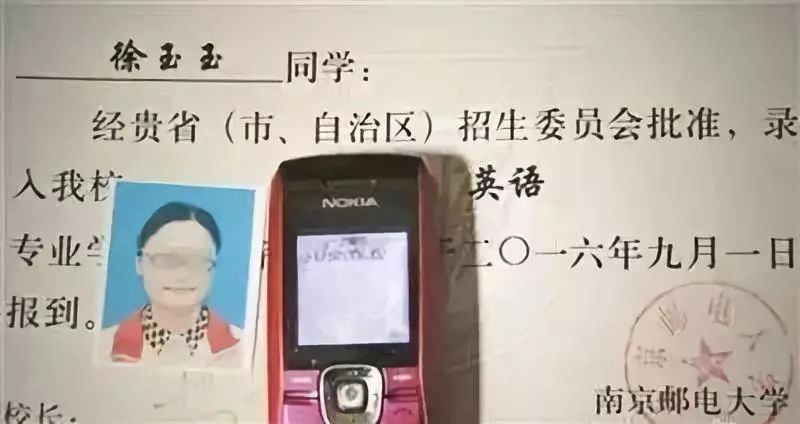 徐玉玉 同学：
经贵省（市、自治区）招生委员会批准，录
入我校 英语
专业学 二〇一六年九月一日
报到。
NOKIA
校长：
南京邮电大学